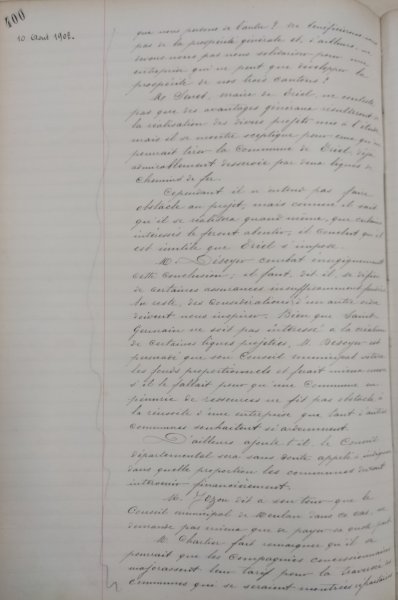 400
10 Août 1908.
que nous portons à l'autre ? ne bénéficierons
pas de la prospérité générale et, d'ailleurs, ne
sommes nous pas solidaires pour une
entreprise qui ne peut que développer la
prospérité de nos trois cantons ?
M. maire de Triel, ne conteste
pas que des avantages généraux résulteront de
la réalisation des divers projets mis à l'étude
mais il se montre sceptique pour ceux que
pourrait tirer la Commune de Triel, déjà
admirablement desservie par deux lignes de
Chemins de fer.
Cependant il n'entend pas faire
obstacle au projet, mais comme il sait
qu'il se réalisera quand même, que certains
intéressés le feront aboutir, il conclut qu'il
est inutile que Triel s'impose.
M. Désoyer combat énergiquement
cette conclusion ; il faut, dit-il, se défier
de certaines assurances insuffisamment fondées
Du reste, des considérations d'un autre ordre
doivent nous inspirer. Bien que Saint
Germain ne soit pas intéressé à la création
de certaines lignes projetées, M. Désoyer est
persuadé que son Conseil municipal votera
les fonds proportionnels et ferait mieux encore
s'il le fallait pour qu'une Commune
de ressources ne fit pas obstacle à
la réussite d'une entreprise que tant d'autres
communes souhaitent si ardemment.
D'ailleurs ajoute t'il, le Conseil
départemental sera sans doute appelé à indiquer
dans quelle proportion les communes devront
intervenir financièrement.
M. dit à son tour que le
Conseil municipal de Meulan dans ce cas, ne
demande pas mieux que de payer sa quote part.
M. Charlier fait remarquer qu'il se
pourrait que les Compagnies concessionnaires
majorassent leur tarif pour la traversée des
communes qui se seraient montrées